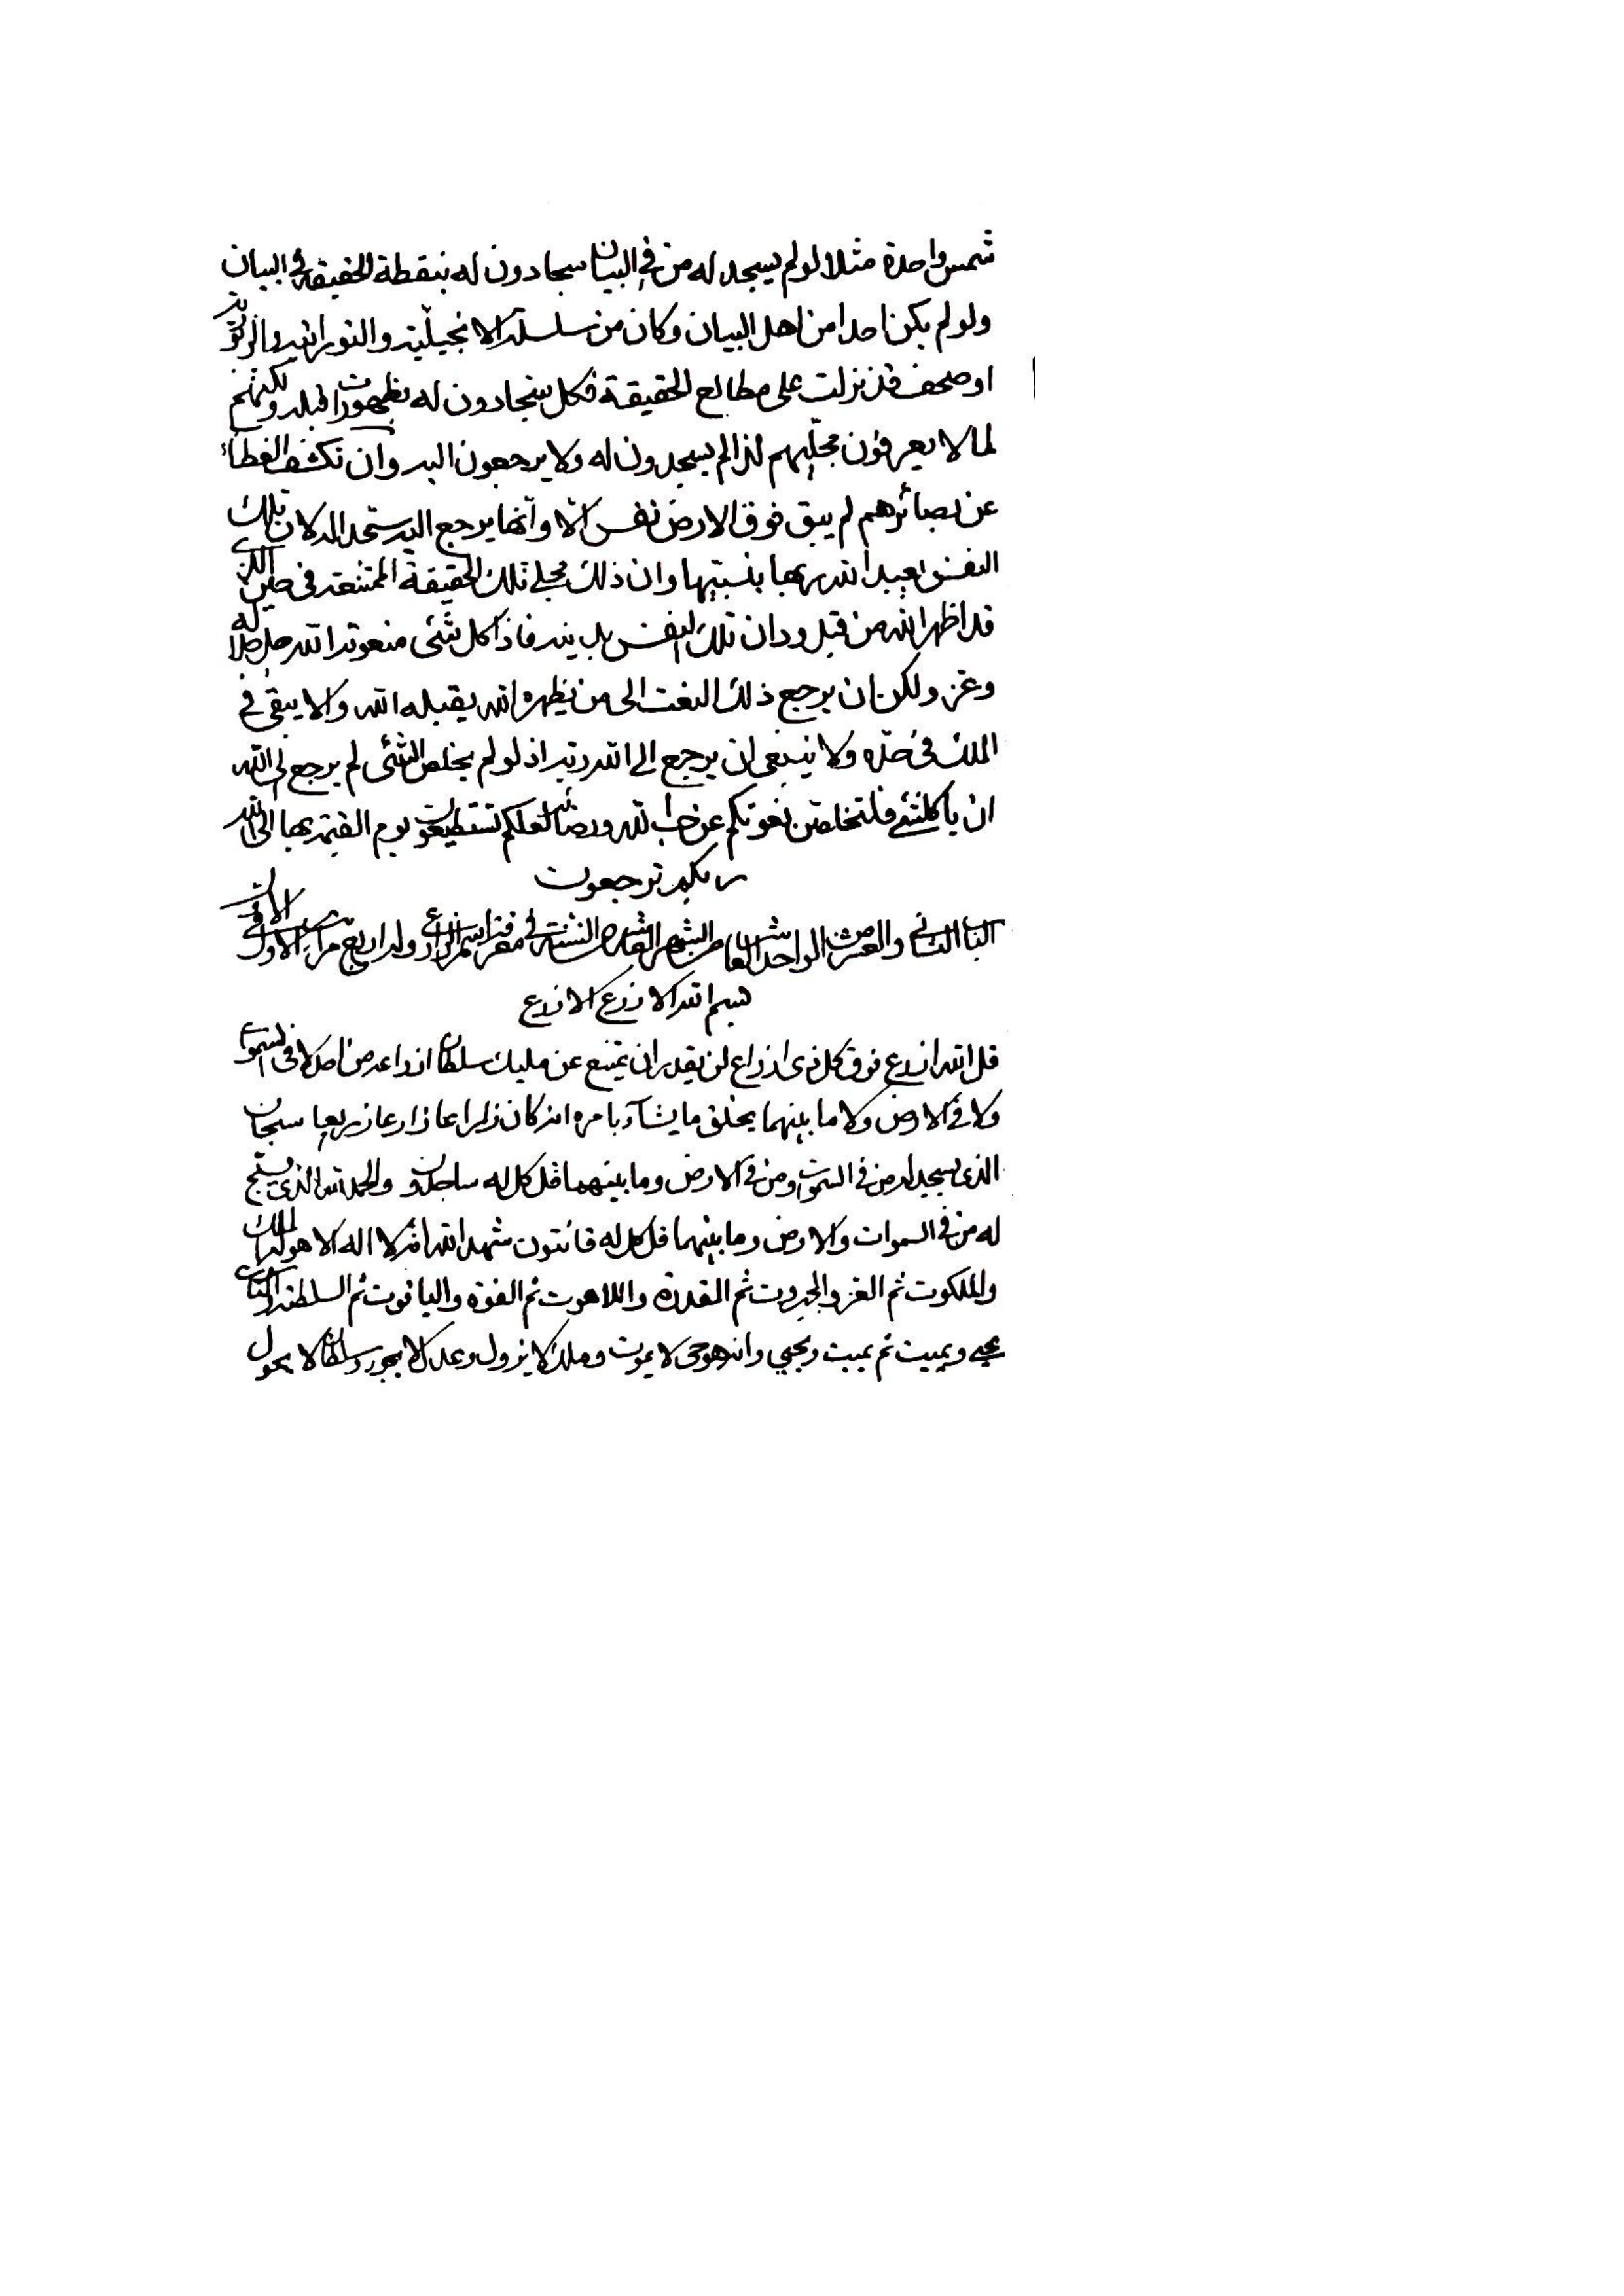 شمس واحدة مثلا لو لم يسجد له من في البيان سجادون له بنقطة الحقيقة في البيان
ولو لم يكن احدا من اهل البيان وكان من سلسلة الانجيلية والتوراتية والزبورية
او صحف قد نزلت على مطالع الحقيقة فكل سجادون له بظهورات قبله ولكنهم
لما لا يعرفون مجليهم لذا لم يسجدون له ولا يرجعون اليه وان تكشف الغطاء
عن بصائرهم لم يبق فوق الارض نفس الا وانها يرجع اليه لان تلك
النفس يعبد الله ربها بنسبتها وان ذلك مجلي تلك الحقيقة في حين الذي
قد اظهر الله من قبل وان تلك النفس فاذا كل شئ منعوته الله جل جلاله
وعز ولكن ان يرجع ذلك النعت الى من يظهره الله يقبله الله والا يبقى في
الملك في حده ولا ينبغي ان يرجع الى الله ربه اذ لو لم يخلص الشئ لم يرجع الى الله
ان يا كلشئ فلتخلصن نعوتكم عن حب الله ورضائه لعلكم تستطيعون يوم القيمة بها الى الله
ربكم ترجعون
الباب الثاني والعشر من الواحد العاشر من الشهر العاشر من السنة في معرفة اسم الزراع وله اربع مراتب الاول في الاول
بسم الله الازرع الازرع
قل الله ازرع فوق كل ذي ازراع لن يقدر ان يمتنع عن مليك سلطان ازراعه من احد لا في السموات
ولا في الارض ولا ما بينهما يخلق ما يشاء بامره انه كان زراعا زارعا زريعا سبحان
الذي يسجد له من في السموات ومن في الارض وما بينهما قل كل له ساجدون والحمد لله الذي يسبح
له من في السموات والارض وما بينهما قل كل له قانتون شهد الله انه لا اله الا هو له الملك
والملكوت ثم العز والجبروت ثم القدرة واللاهوت ثم القوة والياقوت ثم السلطنة والناسوت
يحيي ويميت ثم يميت ويحيي وانه هو حي لا يموت وملك لا يزول وعدل لا يجور وسلطان لا يحول